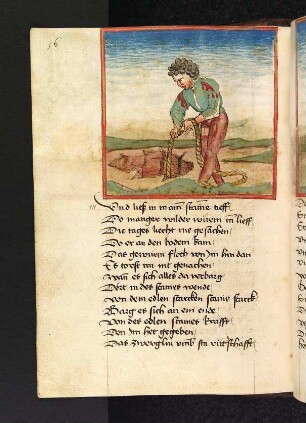 Und lieſz in in ain ſtaine tieff
Do manger wilder wurm in lieff
Die tages liecht nie geſachen
Do er an den bodem kam
Das gewürm floch von im hin dan
Es torſt im nit genachen
Wan es ſich alles da verbarg
Dört in des ſtaines wende
von dem edlen ſtarcken ſtaine ſtarck
Barg es ſich an ein ende
Von des edlen ſtaines krafft
Den im het gegeben
Das zwerglin durch ſin